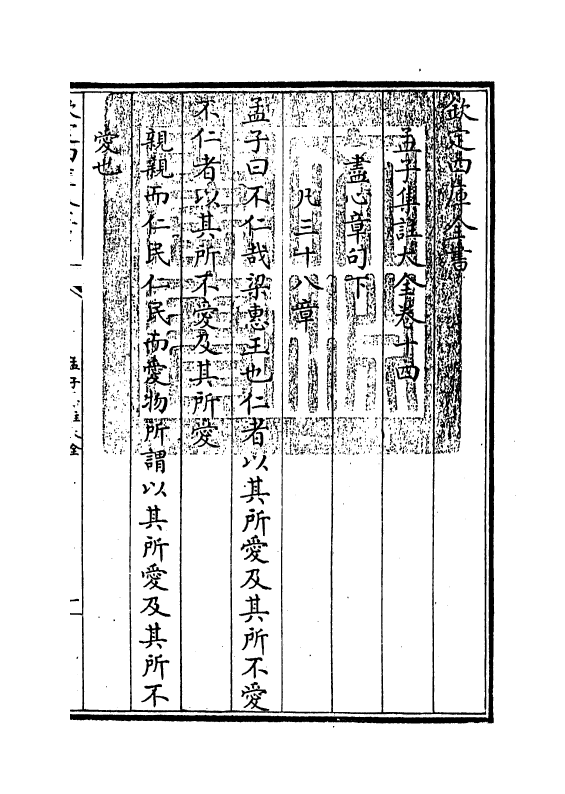 欽定四庫全書
孟子集註大全卷十四
盡心章句下
凡三十八章
孟子曰不仁哉梁惠王也仁者以其所愛及其所不愛
不仁者以其所不愛及其所愛
親親而仁民仁民而愛物所謂以其所愛及其所不
愛也